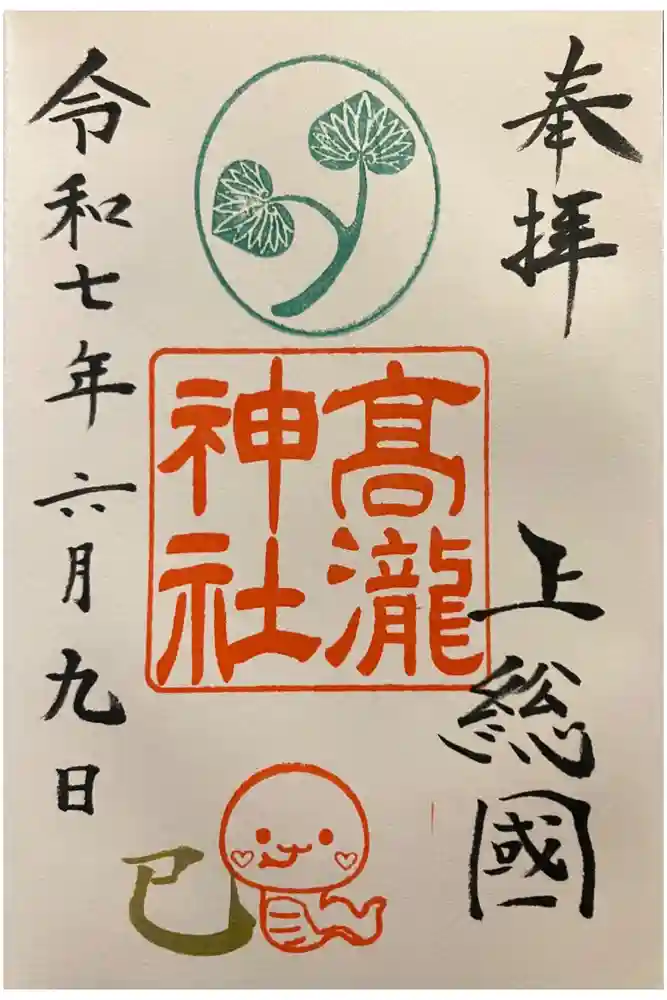 奉拝
上総國
髙瀧
神社
令和七年六月九日
巳